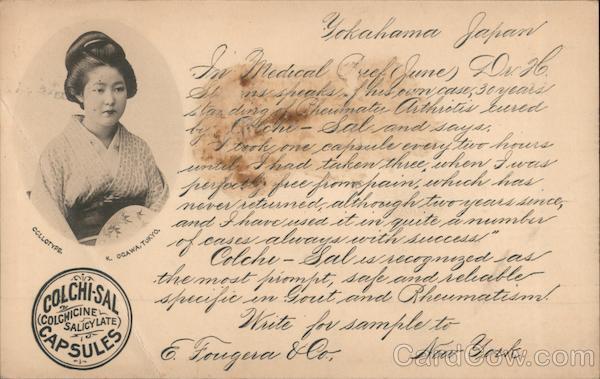 Yokahama Japan
In Medical (June) Dr. H.
speaks his own case, 30 years
standing of Rheumatic Arthritis cured
by Colchi-Sal and says.
I took one capsule every two hours
until I had taken three, when I was
perfectly free from pain, which has
never returned, although two years since,
and I have used it in quite a number
of cases always with success"
Colchi-Sal is recognized as
the most prompt, safe and reliable
specific in Gout and Rheumatism.
Write for sample to
E. Fougera & Co. New York.
COLLOTYPE.
K. OGAWA, TOKYO.
COLCHI-SAL
(COLCHICINE
SALICYLATE)
CAPSULES
CardCow.com